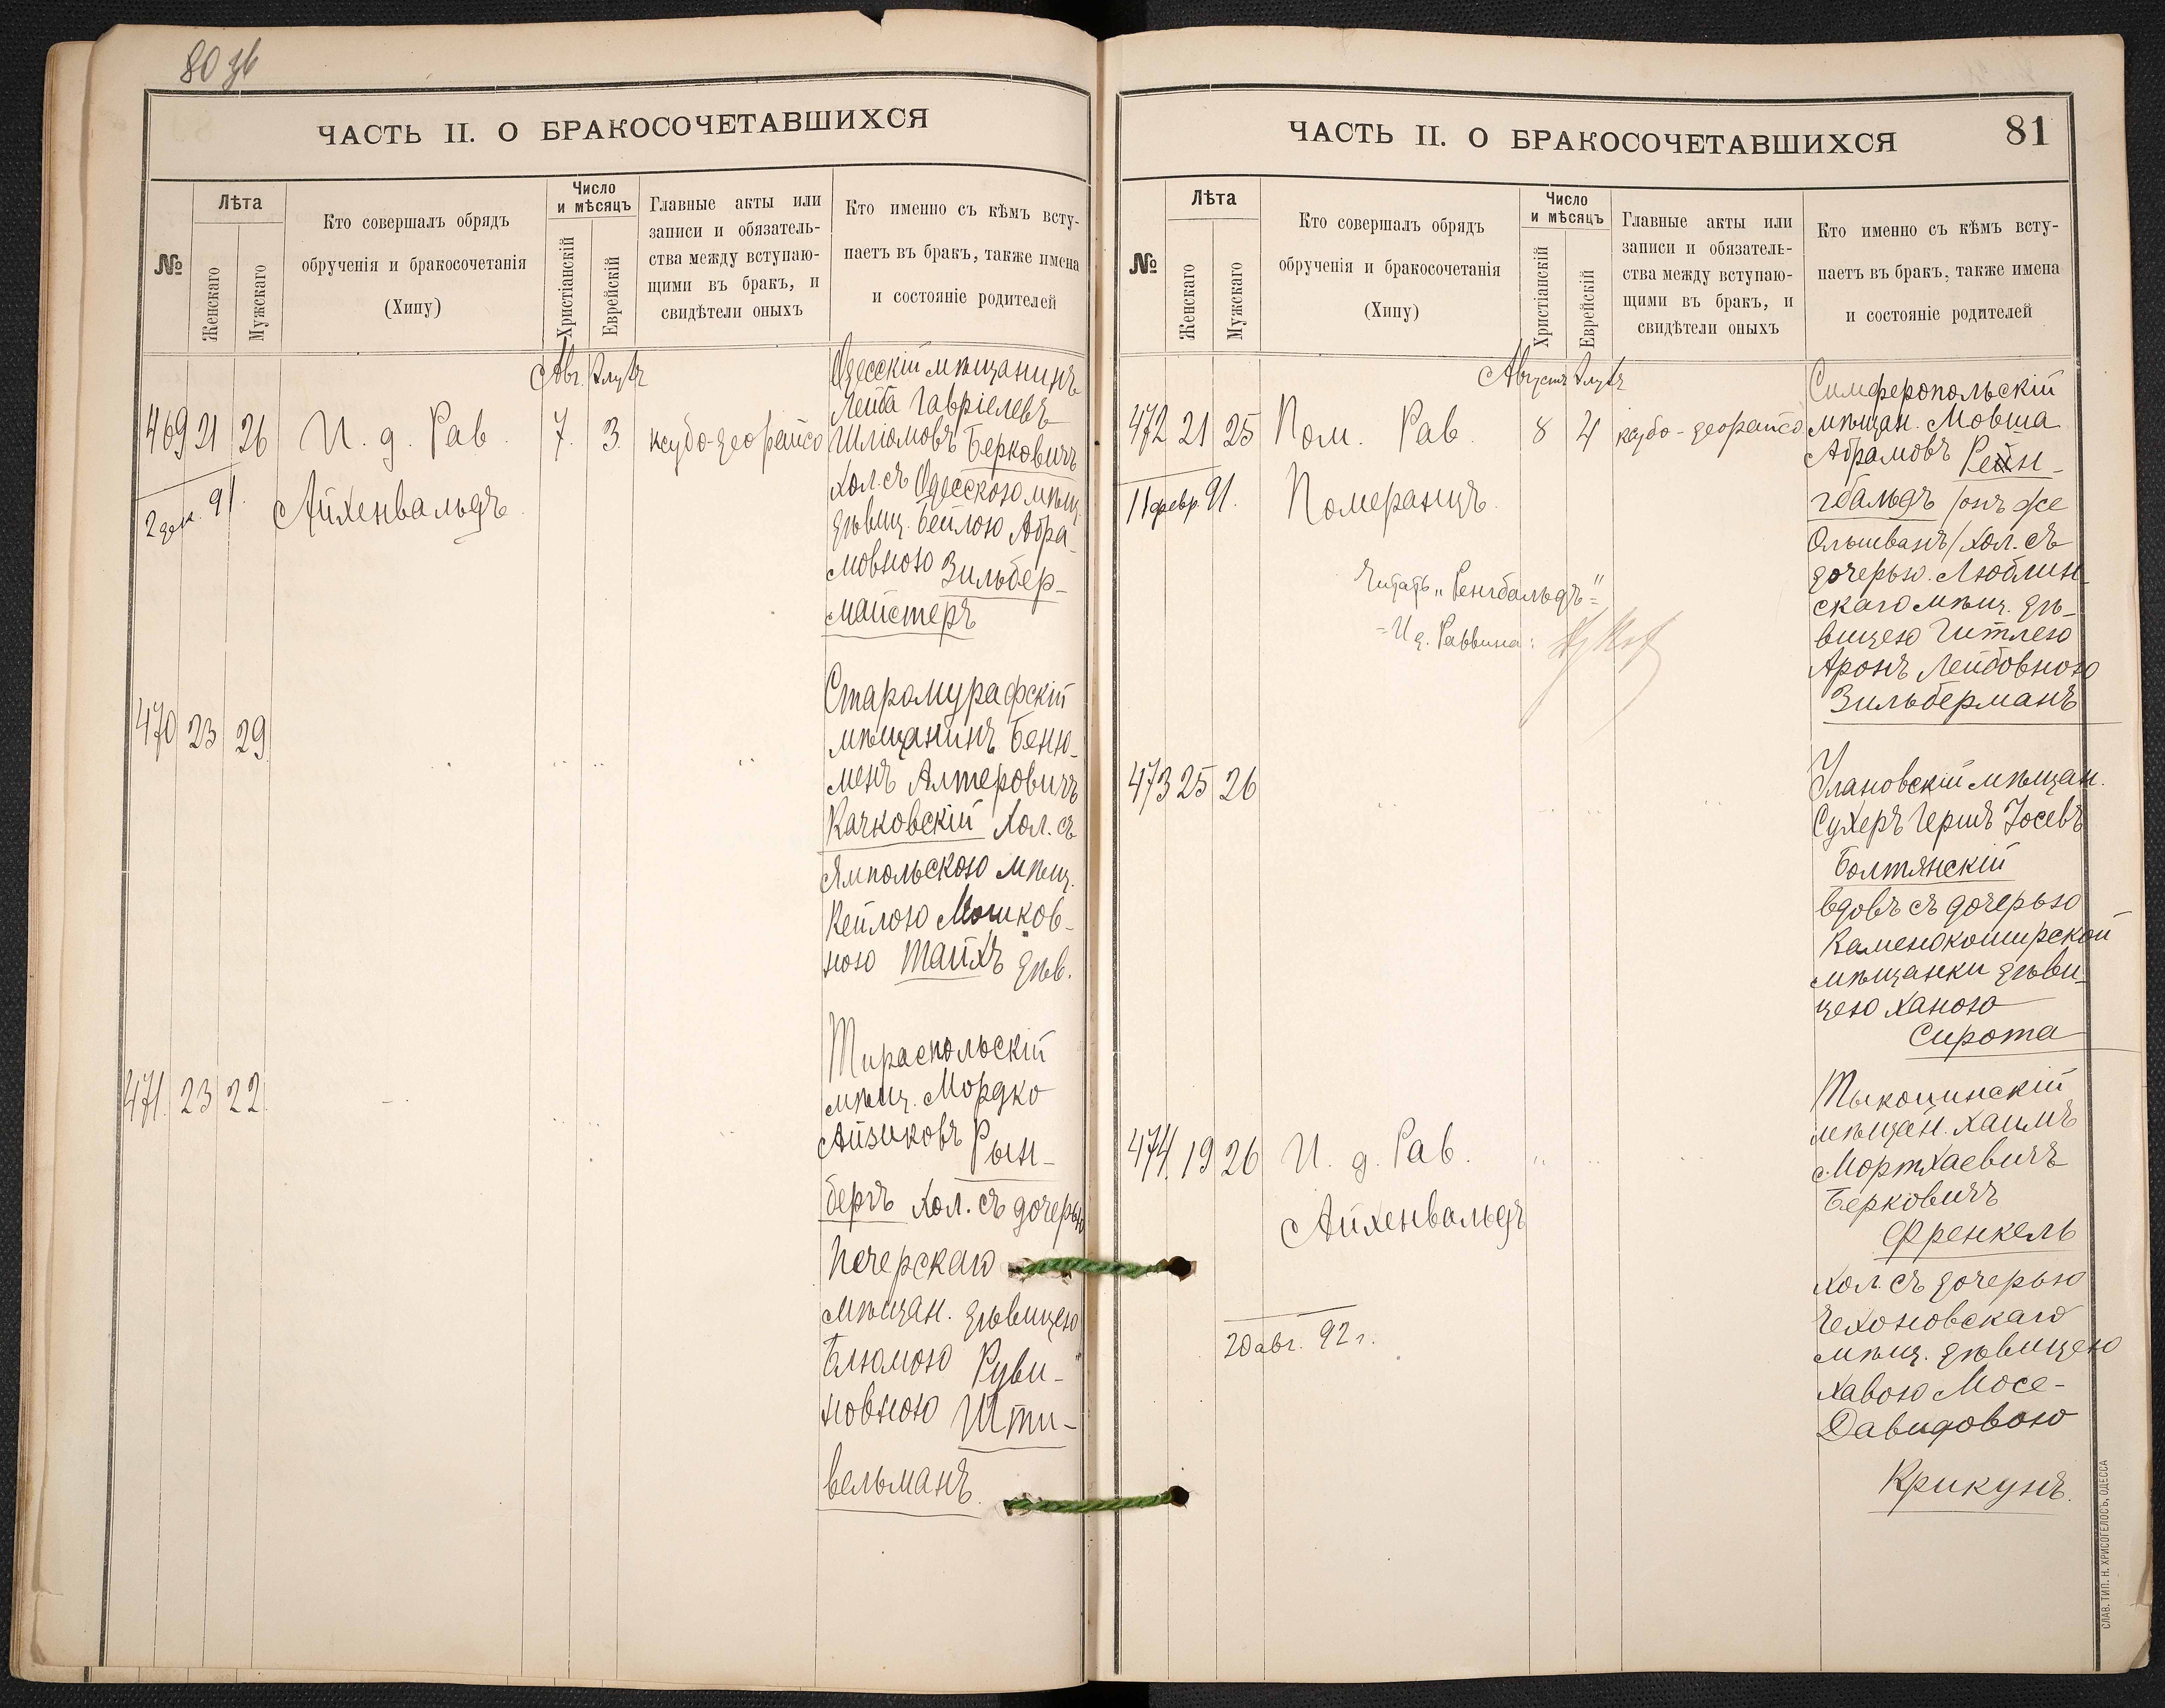 80 зв
ЧАСТЬ II. О БРАКОСОЧЕТАВШИХСЯ
№
Лѣта
Женскаго
Мужскаго
Кто совершалъ обрядъ
обрученія и бракосочетанія
(Хипу)
Число
и мѣсяцъ
Христіанскій
Еврейскій
Главные акты или
записи и обязатель-
ства между вступаю-
щими въ бракъ, и
свидѣтели оныхъ
Кто именно съ кѣмъ всту-
паетъ въ бракъ, также имена
и состояніе родителей
Авг. Элулъ
469 21 26 И. д. Рав. 7. 3. ксубо-деорайсо
2 дек. 91.
Айхенвальдъ
Одесскій мѣщанинъ
Лейба Гавріелевъ
Шліомовъ Берковичъ
хол. съ Одесскою мѣщ.
дѣвиц. Бейлою Абра-
мовною Зильбер-
майстеръ
470 23 29 " " " "
Старомурафскій
мѣщанинъ Беню-
менъ Алтеровичъ
Качковскій хол. съ
Ямпольскою мѣщ.
Кейлою Мошков-
ною Тайхъ дѣв.
471. 23 22. " " " "
Тираспольскій
мѣщ. Мордко
Айзиковъ Рын-
бергъ хол. съ дочерью
Печерскаго
мѣщан. дѣвицею
Блюмою Руви-
новною Шти-
вельманъ.
ЧАСТЬ II. О БРАКОСОЧЕТАВШИХСЯ
81
№
Лѣта
Женскаго
Мужскаго
Кто совершалъ обрядъ
обрученія и бракосочетанія
(Хипу)
Число
и мѣсяцъ
Христіанскій
Еврейскій
Главные акты или
записи и обязатель-
ства между вступаю-
щими въ бракъ, и
свидѣтели оныхъ
Кто именно съ кѣмъ всту-
паетъ въ бракъ, также имена
и состояніе родителей
Августъ Элулъ
472 21 25 Пом. Рав. 8 4 ксубо-деорайсо
11 февр. 91.
Померанцъ.
Читать „Ренгбальдъ"=
=И д. Раввина:
Симферопольскій
мѣщан. Мовша
Абрамовъ Рейн-
гбальдъ /онъ же
Ольшванъ/ хол. съ
дочерью. Люблин-
скаго мѣщ. дѣ-
вицею Гитлею
Аронъ Лейбовною
Зильберманъ
473 25 26 " " " "
Улановскій мѣщан.
Сухеръ Гершъ Іосевъ
Болтянскій
вдовъ съ дочерью
Каменокоширской
мѣщанки дѣви-
цею Ханою
Сирота
474. 19 26 И. д. Рав. " " "
Айхенвальдъ
20 авг. 92 г.
Тыкоцинскій
мѣщан. Хаимъ
Мортхаевичъ
Берковичъ
Френкель
хол. съ дочерью
Чехоновскаго
мѣщ. дѣвицею
Хавою Мосе-
Давидовою
Крикунъ.
СЛАВ. ТИП. Н. ХРИСОГЕЛОСЪ, ОДЕССА